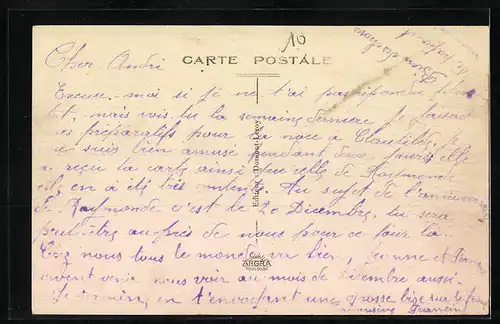 10
CARTE POSTALE
Cher André
Excuse-moi si je ne t'ai pas répondu plus
tôt, mais vois-tu la semaine dernière je faisais
les préparatifs pour la noce à Clautilde, je
me suis bien amusé pendant deux jours, elle
a reçu ta carte ainsi que celle de Raymonde
et en a été très contente. Au sujet de l'anniversaire
de Raymonde c'est le 20 Décembre, tu sera
peut-être auprès de nous pour ce jour là.
Chez nous tous le monde va bien, et
doivent venir nous voir au mois de décembre aussi.
Je termine, en t'envoyant une grosse bise sur le
cousine Francine
Edition
ARGRA
TOULOUSE